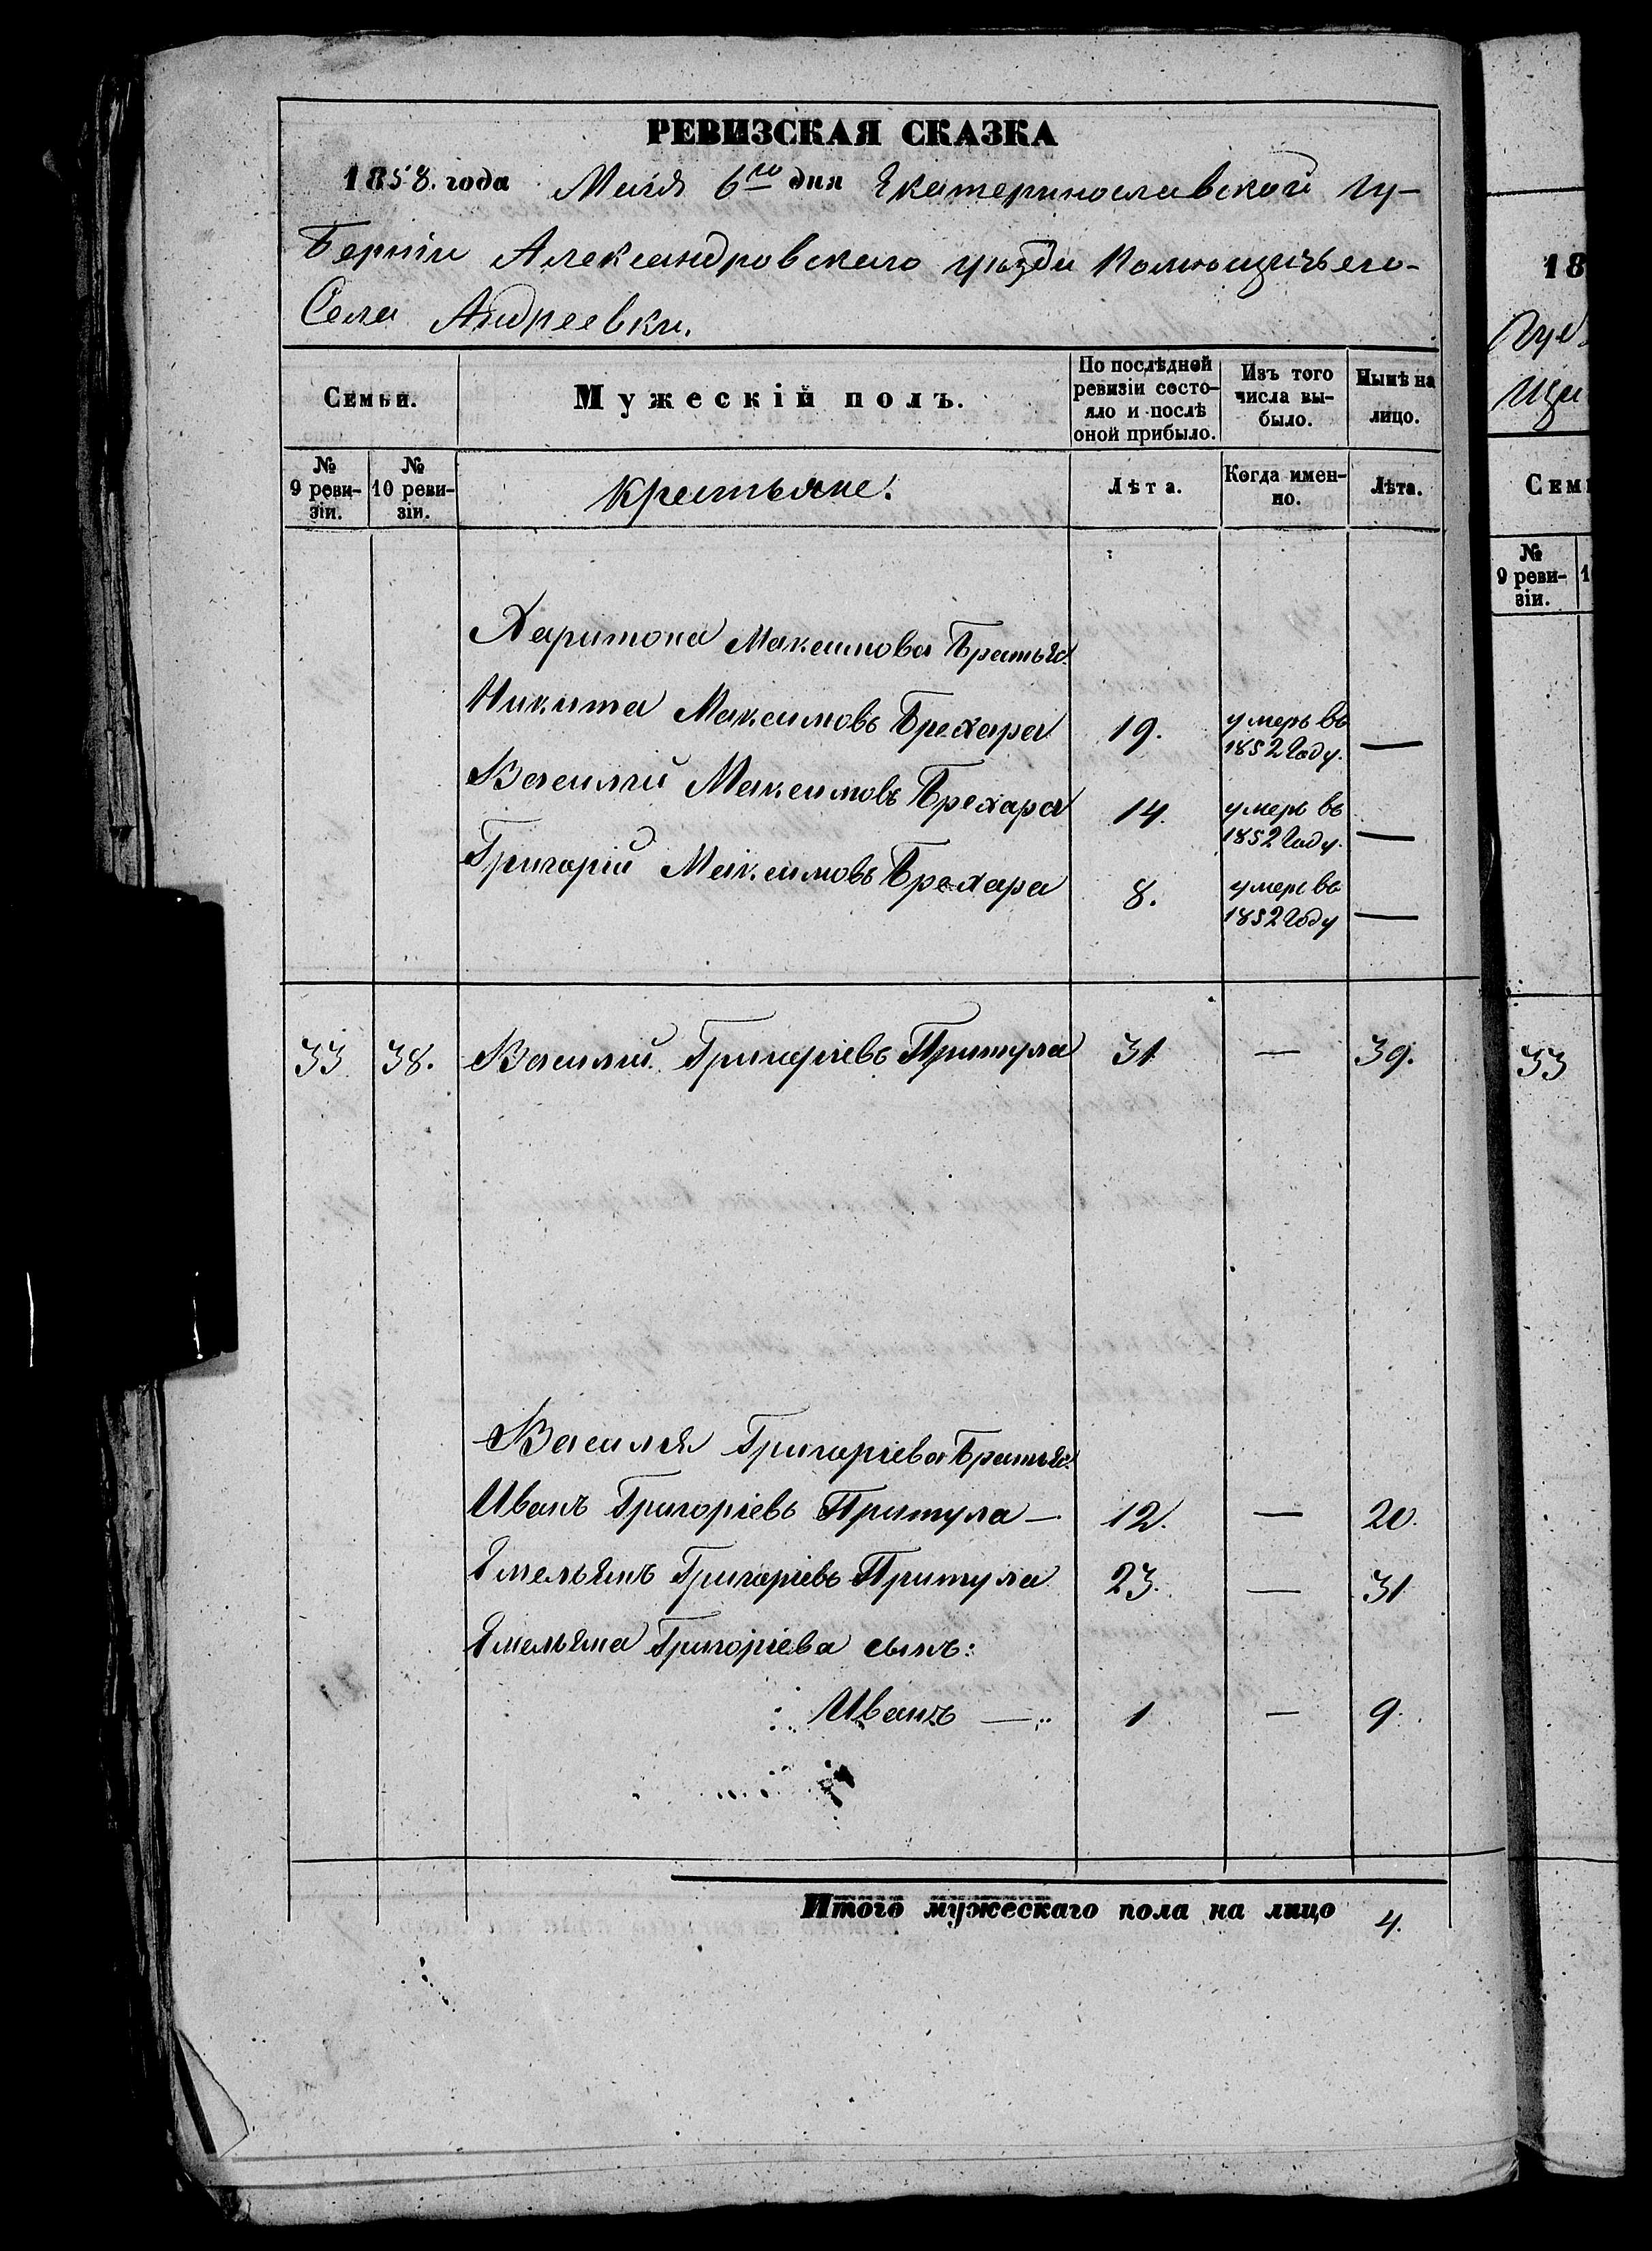 РЕВИЗСКАЯ СКАЗКА
1858. года Маія 6го дня Екатеринославской гу-
берніи Александровскаго уѣзда Помѣщичьего-
Села Андреевки.
Семьи.
Мужескій полъ.
По послѣдней ревизіи состо-
яло и послѣ оной прибыло.
Изъ того числа вы-
было.
Нынѣ на лицо.
№ 9 реви-
зіи.
№ 10 реви-
зіи.
Крестьяне.
Лѣта.
Когда имен-
но.
Лѣта.
Харитона Максимова Братья:
Никита Максимовъ Брехара 19. умеръ въ 1852 Году. —
Василий Максимовъ Брехара 14. умеръ въ 1852 Году. —
Григорій Максимовъ Брехара 8. умеръ въ 1852 Году —
33 38. Василий Григоріевъ Притула 31 — 39.
Василія Григоріева Братья:
Иванъ Григоріевъ Притула — 12. — 20.
Емельянъ Григоріевъ Притула 23. — 31
Емельяна Григоріева сынъ:
Иванъ — 1 — 9.
Итого мужескаго пола на лицо 4.
18
Гуе
щи
Сем
№ 9 реви-
зіи.
1
33